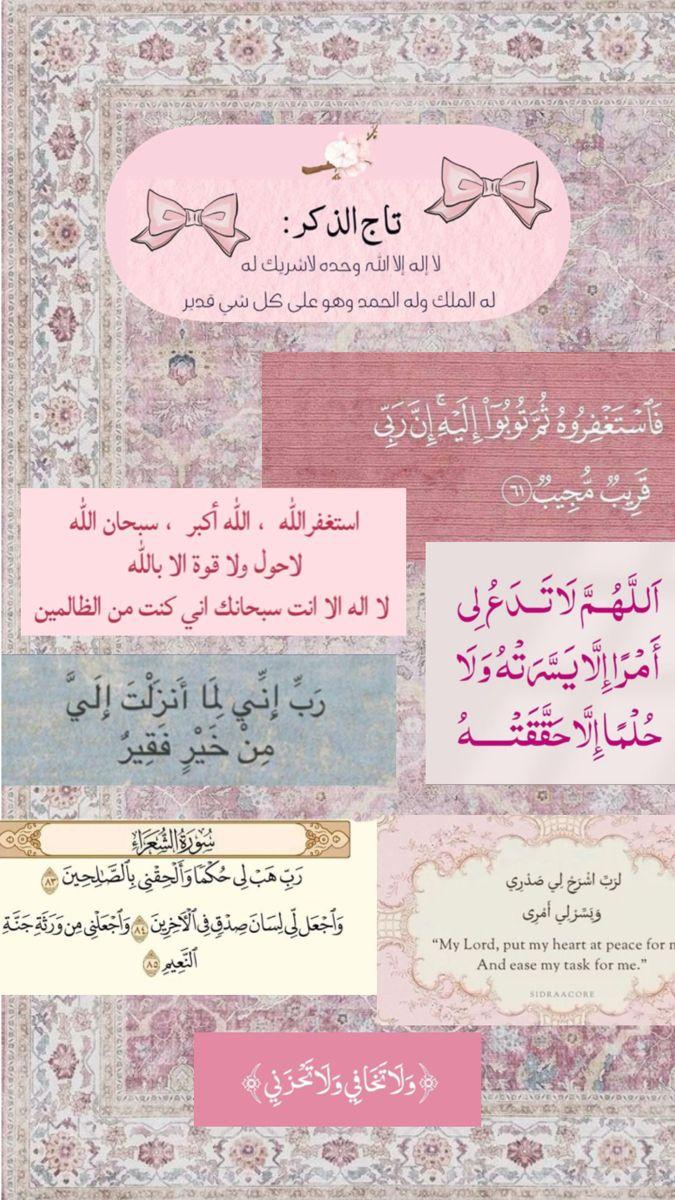 تاج الذكر :
لا إله إلا الله وحده لاشريك له
له الملك وله الحمد وهو على كل شي قدير
فَٱسْتَغْفِرُوهُ ثُمَّ تُوبُوٓا۟ إِلَيْهِ ۚ إِنَّ رَبِّى
قَرِيبٌ مُّجِيبٌ ٦١
استغفرالله ، الله أكبر ، سبحان الله
لاحول ولا قوة الا بالله
لا اله الا انت سبحانك اني كنت من الظالمين
اَللَّهُمَّ لَا تَدَعْ لِى
أَمْرًا إِلَّا يَسَّرْتَهُ وَلَا
حُلْمًا إِلَّا حَقَّقْتَهُ
رَبِّ إِنِّي لِمَا أَنزَلْتَ إِلَيَّ
مِنْ خَيْرٍ فَقِيرٌ
سُورَةُ الشُّعَرَاءِ
رَبِّ هَبْ لِى حُكْمًا وَأَلْحِقْنِى بِٱلصَّـٰلِحِينَ ٨٣
وَٱجْعَل لِّى لِسَانَ صِدْقٍ فِى ٱلْـَٔاخِرِينَ ٨٤ وَٱجْعَلْنِى مِن وَرَثَةِ جَنَّةِ
ٱلنَّعِيمِ ٨٥
رَبِّ اشْرَحْ لِي صَدْرِي
وَيَسِّرْ لِي أَمْرِى
“My Lord, put my heart at peace for m
And ease my task for me.”
SIDRAACORE
﴿وَلَا تَخَافِي وَلَا تَحْزَنِي﴾